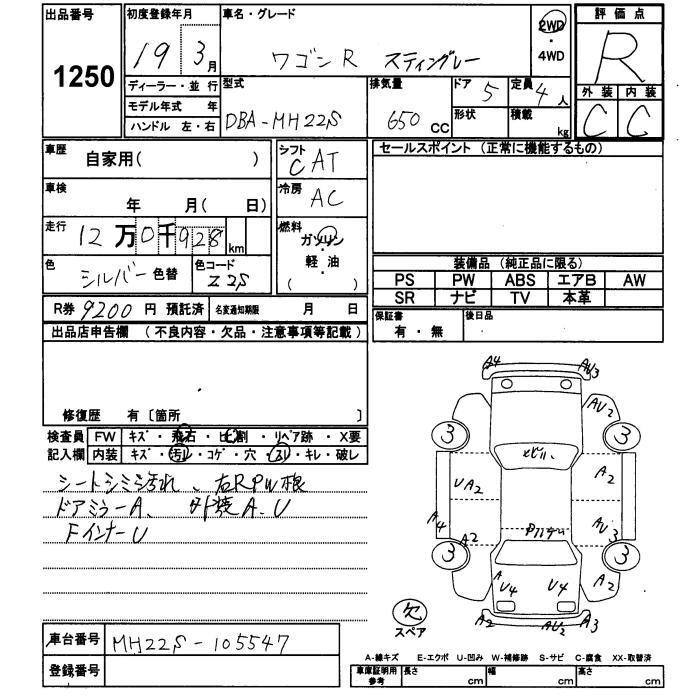 出品番号
1250
初度登録年月
19 3月
車名・グレード
ワゴンR スティングレー
2WD
・4WD
評価点
R
外装 内装
C C
ディーラー・並行
モデル年式 年
ハンドル 左・右
型式
DBA-MH22S
排気量
650 cc
ドア 5
形状
定員 4人
積載 kg
車歴
自家用( )
シフト
CAT
車検
年 月( 日)
冷房
AC
走行
12万0千928 km
燃料
ガソリン
軽・油
( )
色
シルバー 色替
色コード
Z2S
R券 9200 円 預託済
名変通知期限 月 日
セールスポイント (正常に機能するもの)
装備品 (純正品に限る)
PS PW ABS エアB AW
SR ナビ TV 本革
保証書
有・無
後日品
出品店申告欄 (不良内容・欠品・注意事項等記載)
修復歴 有〔箇所 〕
検査員 FW キズ・飛石・ヒビ割・リペア跡・X要
記入欄 内装 キズ・汚レ・コゲ・穴・スレ・キレ・破レ
シートシミ汚れ、右RPW根
ドアミラーA、外装A、U
FインナーU
A4 AU3
AU2
3 3
UA2 A2
A4 AU3
A2
3 3
A U4 U4 A2
A2 AU2 A3
欠
スペア
A-線キズ E-エクボ U-凹み W-補修跡 S-サビ C-腐食 XX-取替済
車台番号 MH22S-105547
登録番号
車庫証明用
参考
長さ cm 幅 cm 高さ cm